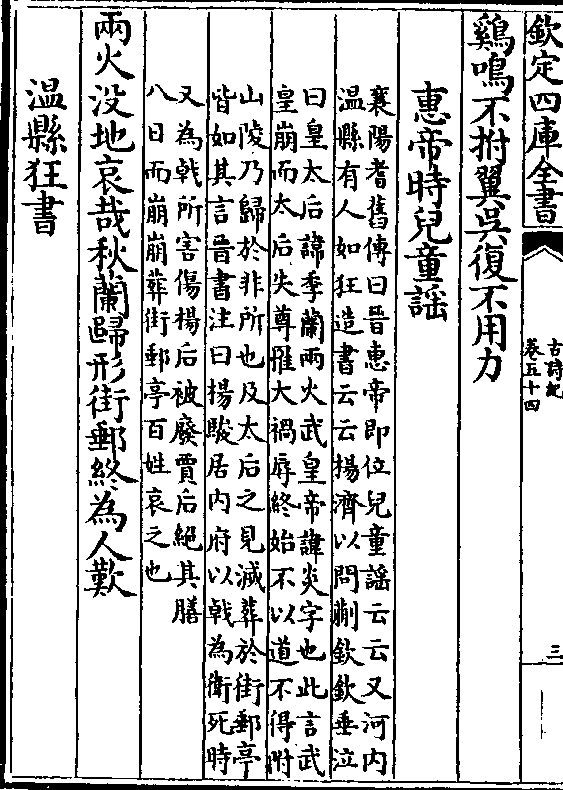 欽定四庫全書
古詩紀
卷五十四
三
鷄鳴不拊翼吳復不用力
惠帝時兒童謡
襄陽耆舊傳曰晉惠帝即位兒童謡云云又河内
温縣有人如狂造書云云揚濟以問蒯欽欽垂泣
曰皇太后諱季蘭兩火武皇帝諱炎字也此言武
皇崩而太后失尊罹大禍辱終始不以道不得附
山陵乃歸於非所也及太后之見滅葬於街郵亭
皆如其言晉書注曰揚駿居内府以戟為衛死時
又為戟所害傷揚后被廢賈后絕其膳
八日而崩崩葬街郵亭百姓哀之也
兩火没地哀哉秋蘭歸形街郵終為人歎
温縣狂書